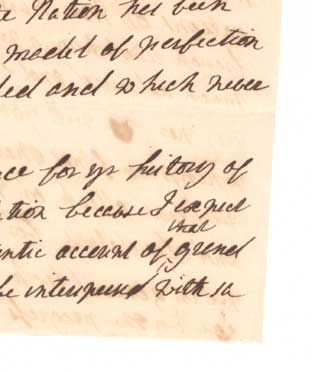 te Nation has been
model of perfection
ded and which never
ce for yr history of
tion because I expect
that
ntic account of grend
be interspersed with sa